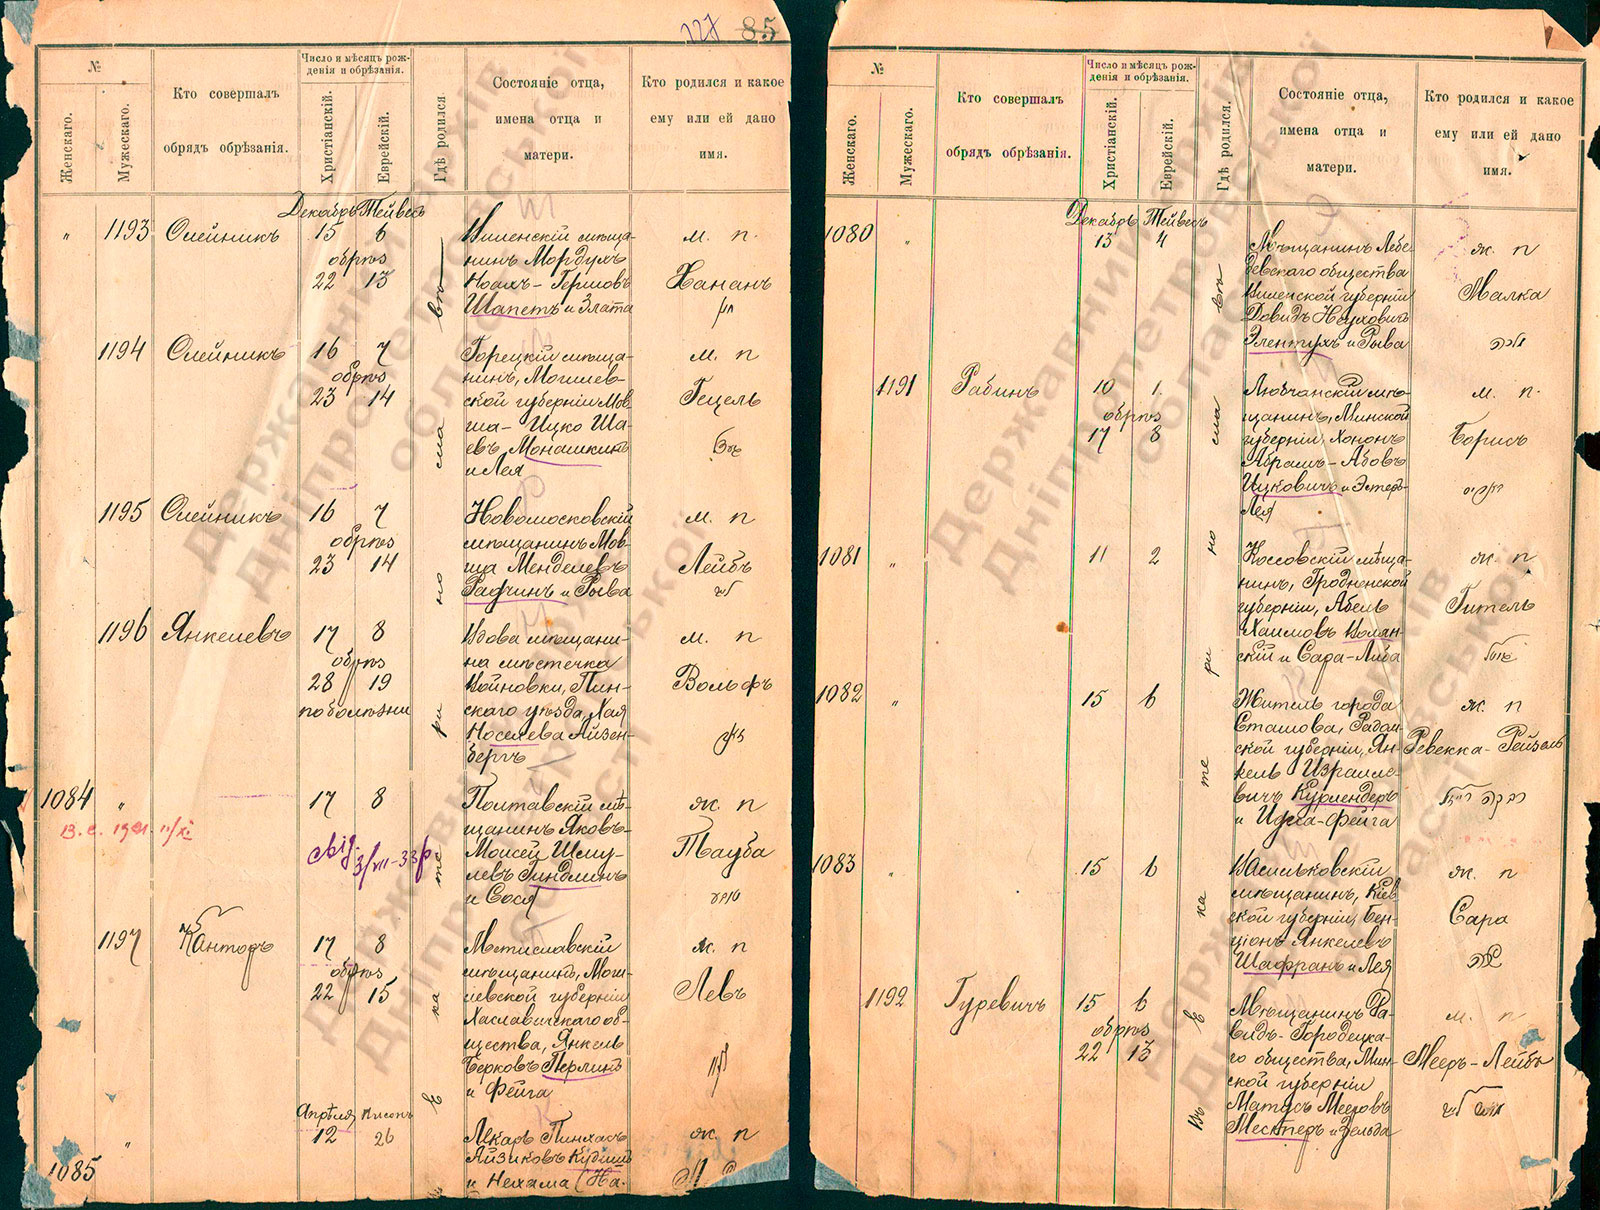 127 85
№
Женскаго.
Мужескаго.
Кто совершалъ
обрядъ обрѣзанія.
Число и мѣсяцъ рож-
денія и обрѣзанія.
Христіанскій.
Еврейскій.
Гдѣ родился
Состояніе отца,
имена отца и
матери.
Кто родился и какое
ему или ей дано
имя.
Декабрь Тейвесъ
" 1193 Олейникъ 15 6
обрѣз
22 13
Виленскій мѣща-
нинъ Мордухъ
Ноахъ-Гершовъ
Шапетъ и Злата
м. п.
Хананъ
1194 Олейникъ 16 7
обрѣз
23 14
Горецкій мѣща-
нинъ, Могилев-
ской губерніи Мов-
ша-Ицко Ша-
евъ Монашкинъ
и Лея
м. п
Гецель
1195 Олейникъ 16 7
обрѣз
23 14
Новомосковскій
мѣщанинъ Мов-
ша Менделевъ
Рафчинъ и Рыва
м. п
Лейбъ
1196 Янкелевъ 17 8
обрѣз
28 19
по болѣзни
Вдова мѣщани-
на мѣстечка
Войновки, Пин-
скаго уѣзда, Хая
Носелева Айзен-
бергъ
м. п
Вольфъ
1084 " 17 8
Полтавскій мѣ-
щанинъ Яковъ-
Моисей Шму-
левъ Гиндлинъ
и Сося
ж. п
Тауба
1197 Канторъ 17 8
обрѣз
22 15
Мстиславскій
мѣщанинъ, Моги-
левской губерніи
Хаславичскаго об-
щества, Янкель
Берковъ Перлинъ
и Фейга
м. п
Левъ
Апрѣля Нисонъ
1085 " 12 26
Лѣкарь Пинхасъ
Айзиковъ Кудишъ
и Нехама (На-
ж. п
въ Екатеринославѣ
№
Женскаго.
Мужескаго.
Кто совершалъ
обрядъ обрѣзанія.
Число и мѣсяцъ рож-
денія и обрѣзанія.
Христіанскій.
Еврейскій.
Гдѣ родился.
Состояніе отца,
имена отца и
матери.
Кто родился и какое
ему или ей дано
имя.
Декабрь Тейвесъ
1080 " 13 4
Мѣщанинъ Лебе-
девскаго общества
Виленской губерніи
Довидъ Ноуховичъ
Элентухъ и Рыва
ж. п
Малка
מלכה
1191 Рабинъ 10 1.
обрѣз
17 8
Любчанскій мѣ-
щанинъ, Минской
губерніи, Хононъ
Абрамъ-Абовъ
Ицковичъ и Эстеръ-
Лея
м. п.
Борисъ
1081 " 11 2
Коссовскій мѣща-
нинъ, Гродненской
губерніи, Абель
Хаимовъ Волян-
скій и Сара-Либа
ж. п
Гитель
1082 " 15 6
Житель города
Сташова, Радом-
ской губерніи, Ян-
кель Израиле-
вичъ Курлендеръ
и Идеса-Фейга
ж. п
Ревекка-Рейзель
רבקה רייזל
1083 " 15 6
Васильковскій
мѣщанинъ, Кіев-
ской губерніи, Бен-
ціонъ Янкелевъ
Шафранъ и Лея
ж. п
Сара
שרה
1192 Гуревичъ 15 6
обрѣз
22 13
Мѣщанинъ Да-
видъ-Городецка-
го общества, Мин-
ской губерніи
Матусъ Мееровъ
Меснеръ и Зельда
м. п
Мееръ-Лейбъ
въ Екатеринославѣ
Державний архів
Дніпропетровської
області